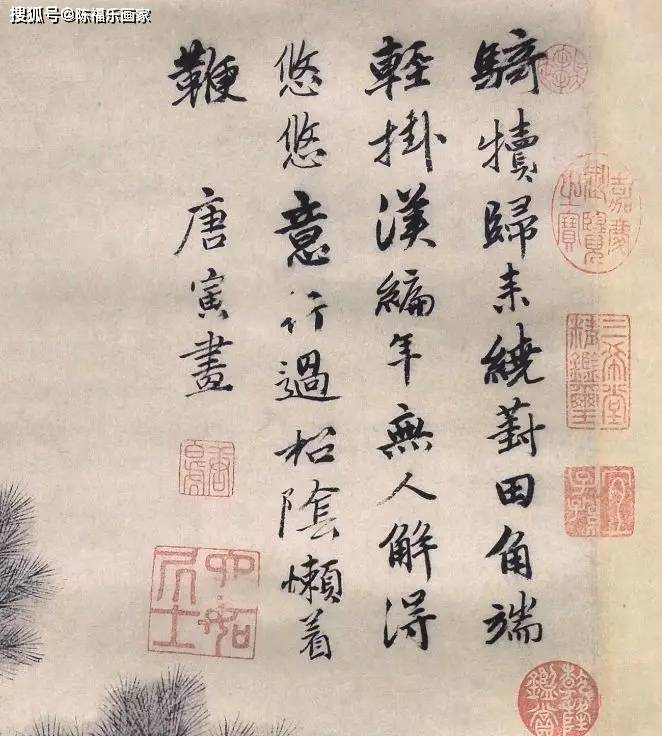 搜狐号@陈福乐画家
騎犢歸来繞葑田角端
輕掛漢編年無人解得
悠悠意行過松陰懶着
鞭 唐寅畫
唐白虎
六如居士
嘉慶御覽之寶
三希堂精鑑璽
宜子孫
乾隆鑑賞